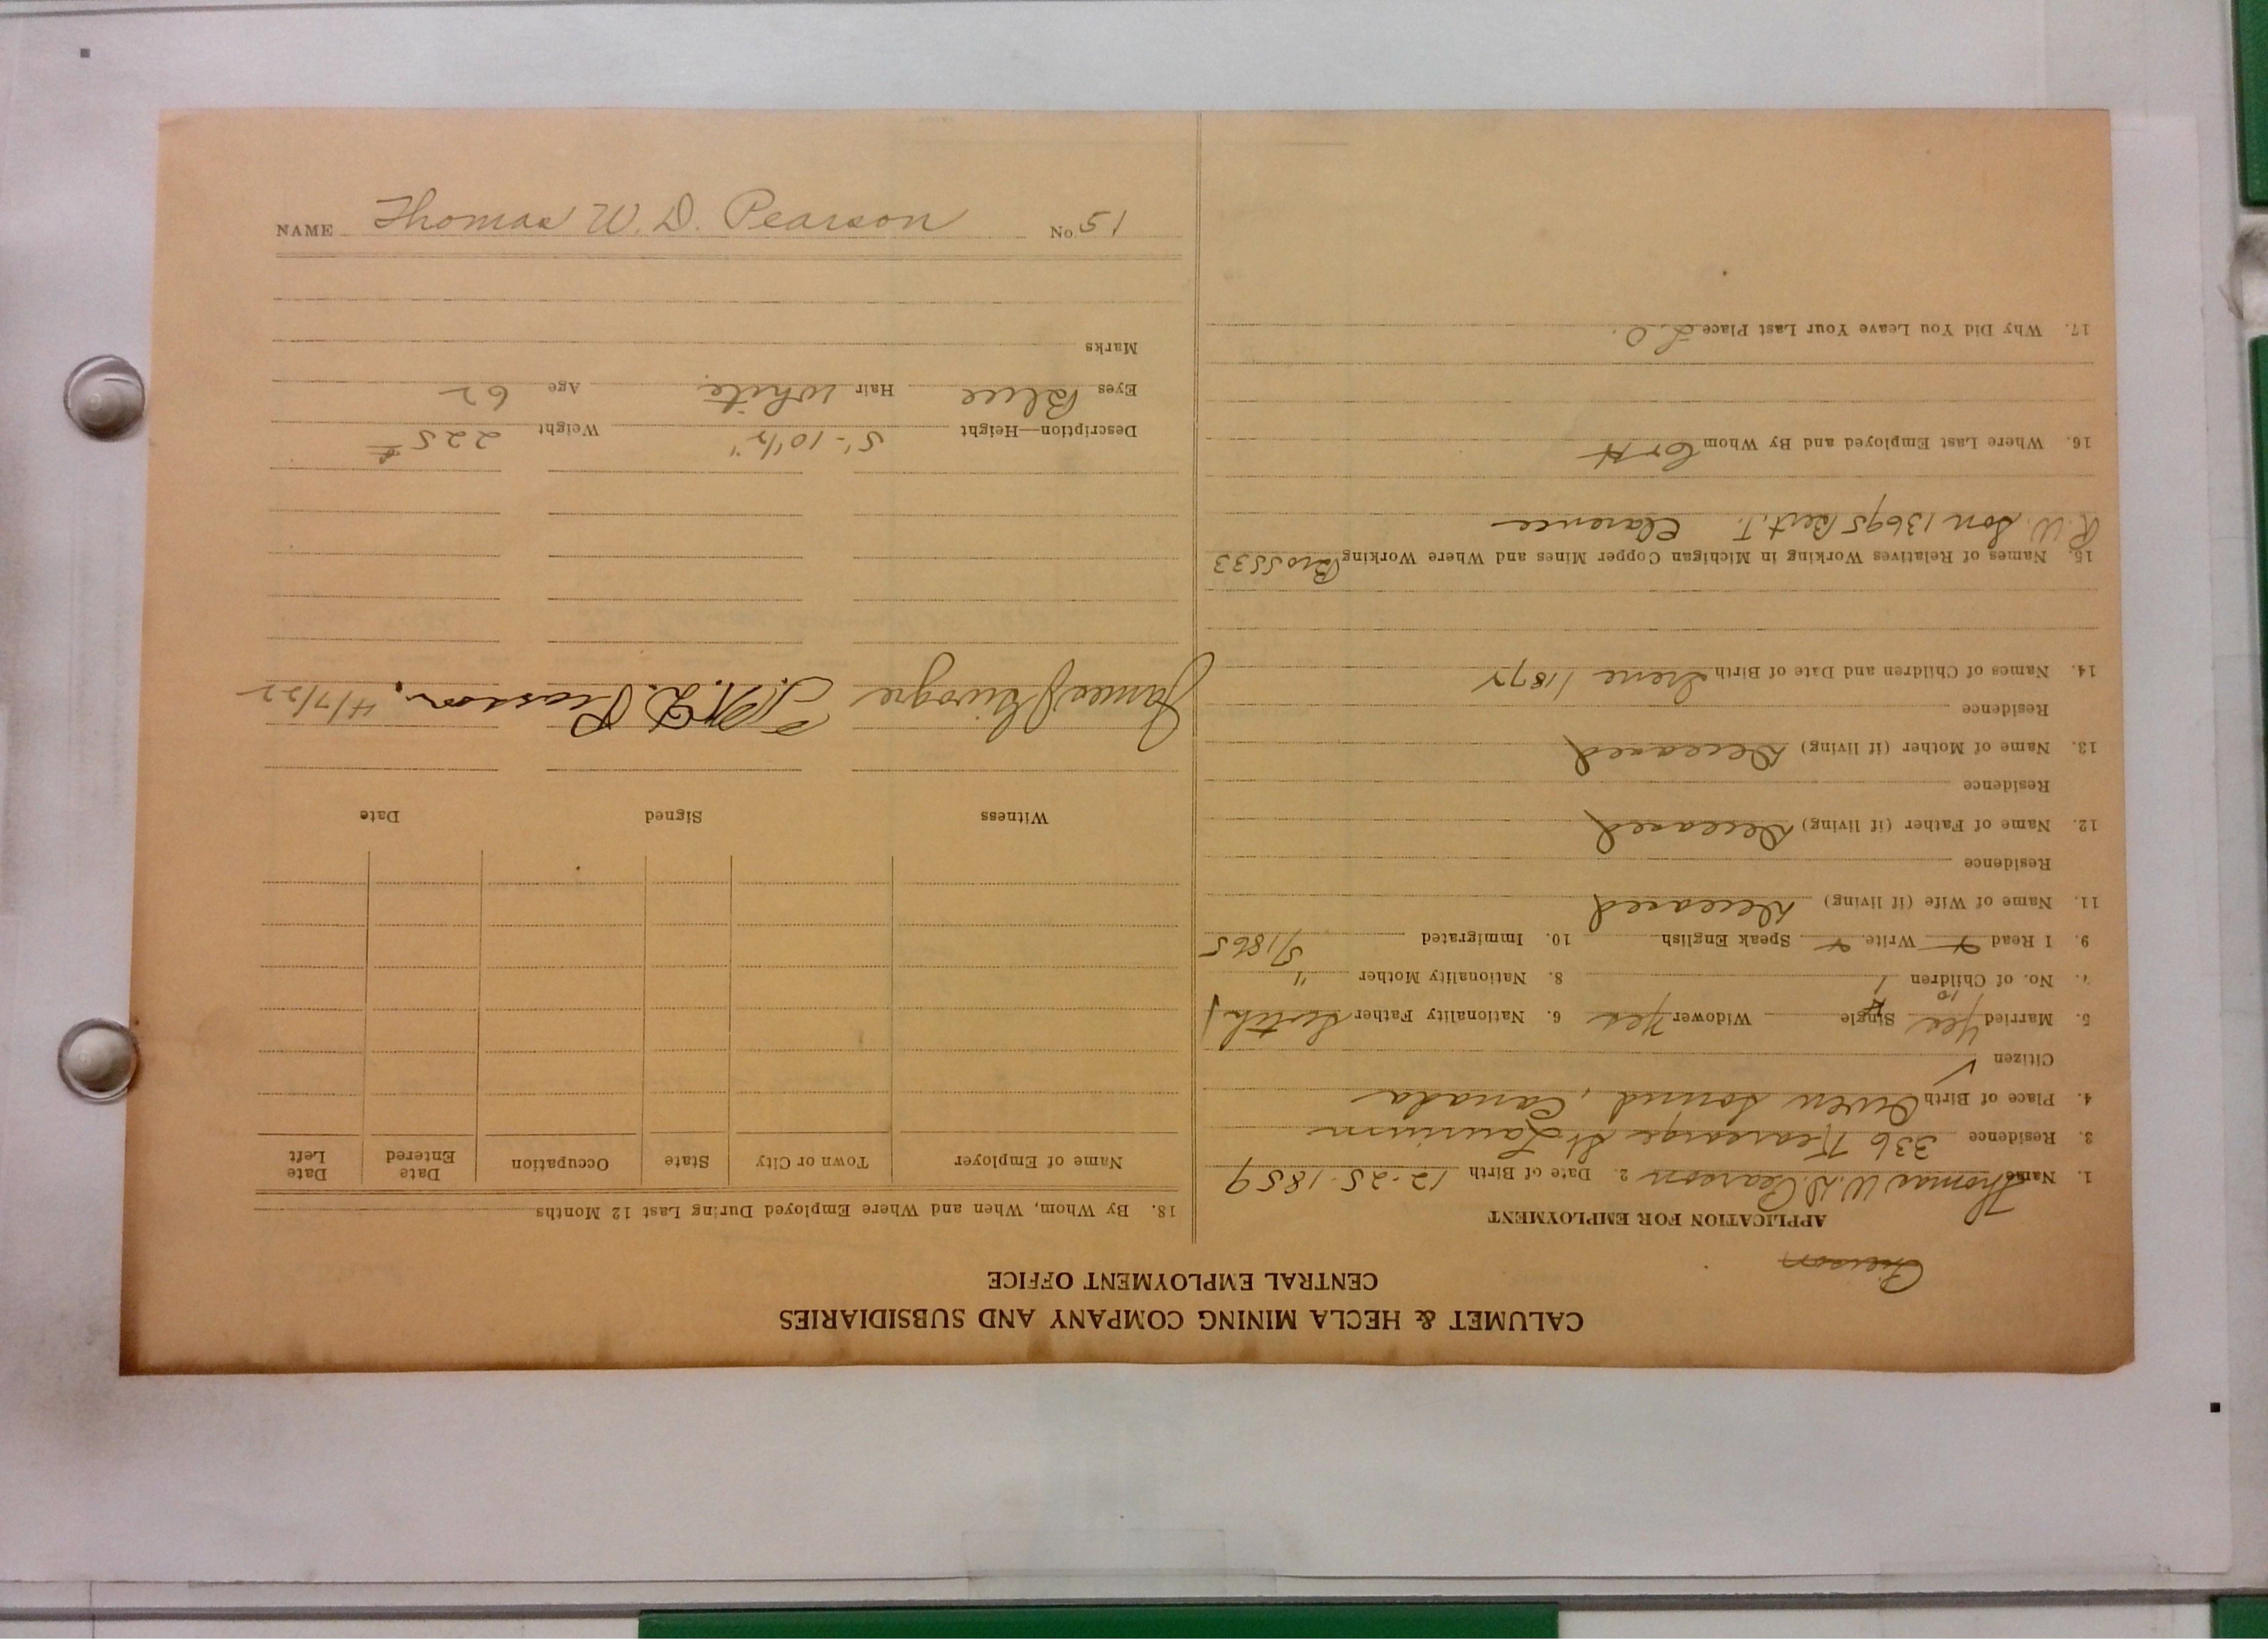 NAME Thomas W. D. Pearson No. 51
CALUMET & HECLA MINING COMPANY AND SUBSIDIARIES
CENTRAL EMPLOYMENT OFFICE
APPLICATION FOR EMPLOYMENT
1. Name Thomas W. D. Pearson 2. Date of Birth 12-25-1859
3. Residence 336 Kearsarge St Laurium
4. Place of Birth Owen Sound, Canada
Citizen ✓
5. Married Yes Single Widower Yes 6. Nationality Father Scotch
7. No. of Children 1 8. Nationality Mother "
9. I Read Write Speak English 10. Immigrated 5/1865
11. Name of Wife (if living) Deceased
Residence
12. Name of Father (if living) Deceased
Residence
13. Name of Mother (if living) Deceased
Residence
14. Names of Children and Date of Birth Irene 1872
15. Names of Relatives Working in Michigan Copper Mines and Where Working Bro 5533
R.W. Son 13695 Bert. T. Clarence
16. Where Last Employed and By Whom C & H
17. Why Did You Leave Your Last Place L.O.
18. By Whom, When and Where Employed During Last 12 Months
Name of Employer Town or City State Occupation Date Entered Date Left
Witness Signed Date
T. W. D. Pearson. 4/7/22
Description—Height 5'-10 1/2" Weight 225 #
Eyes Blue Hair White Age 62
Marks